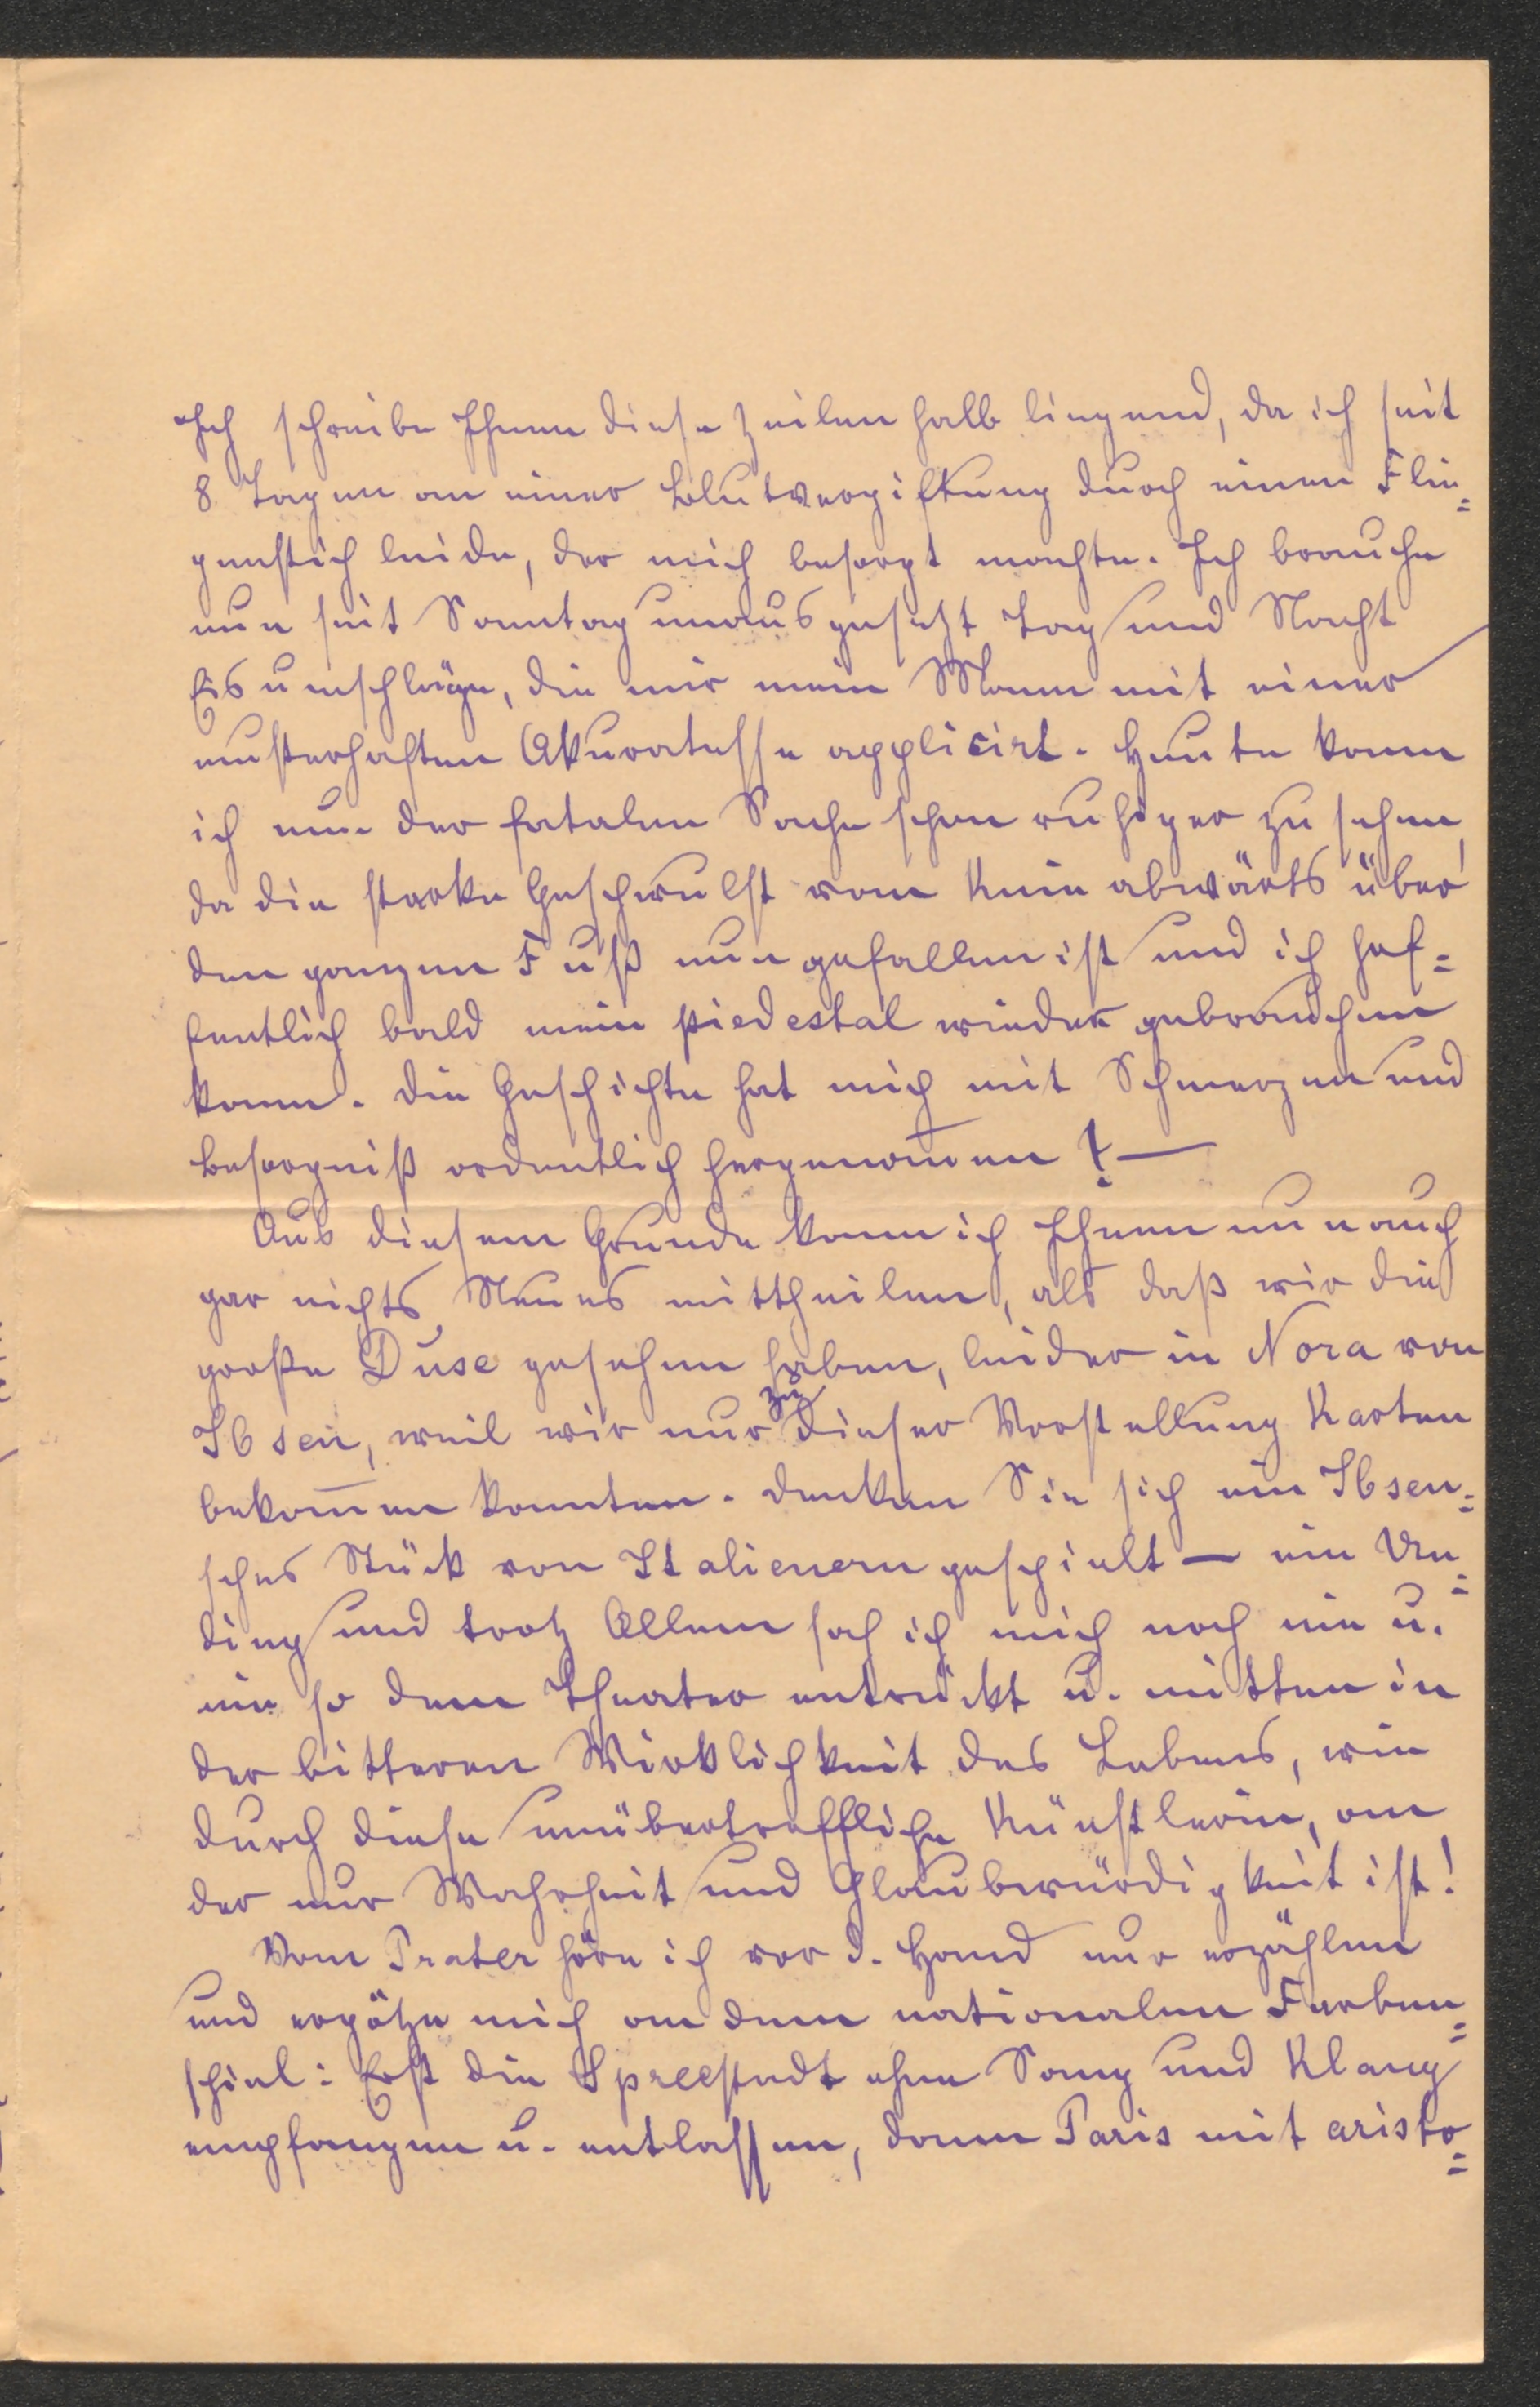 Ich schreibe Ihnen diese Zeilen halb liegend, da ich seit
8 Tagen an einer Blutvergiftung durch einen Flie=
genstich leide, der mich besorgt machte. Ich brauche
nun seit Sonntag unausgesetzt Tag und Nacht
Eisumschläge, die mir mein Mann mit einer
musterhaften Akuratesse applicirt. Heute kann
ich nun der fatalen Sache schon ruhiger zusehen,
da die starke Geschwulst vom Knie abwärts über
den ganzen Fuß nun gefallen ist und ich hof=
fentlich bald mein piedestal wieder gebrauchen
kann. Die Geschichte hat mich mit Schmerzen und
Besorgniß ordentlich hergenom̄en! —
Aus diesem Grunde kann ich Ihnen nun auch
gar nichts Neues mittheilen, als daß wir die
große Duse gesehen haben, leider in Nora von
Ibsen, weil wir nur zu dieser Vorstellung Karten
bekom̄en konnten. Denken Sie sich ein Ibsen=
sches Stück von Italienern gespielt — ein Un=
ding und trotz Allem sah ich mich noch nie u.
nie so dem Theater entrückt u. mitten in
der bitteren Wirklichkeit des Lebens, wie
durch diese unübertreffliche Künstlerin, an
der nur Wahrheit und Glaubwürdigkeit ist!
Vom Prater höre ich vor d. Hand nur erzählen
und ergötze mich an dem nationalen Farben=
spiel: Erst die Spreestadt ohne Sang und Klang
empfangen u. entlassen, dann Paris mit aristo=